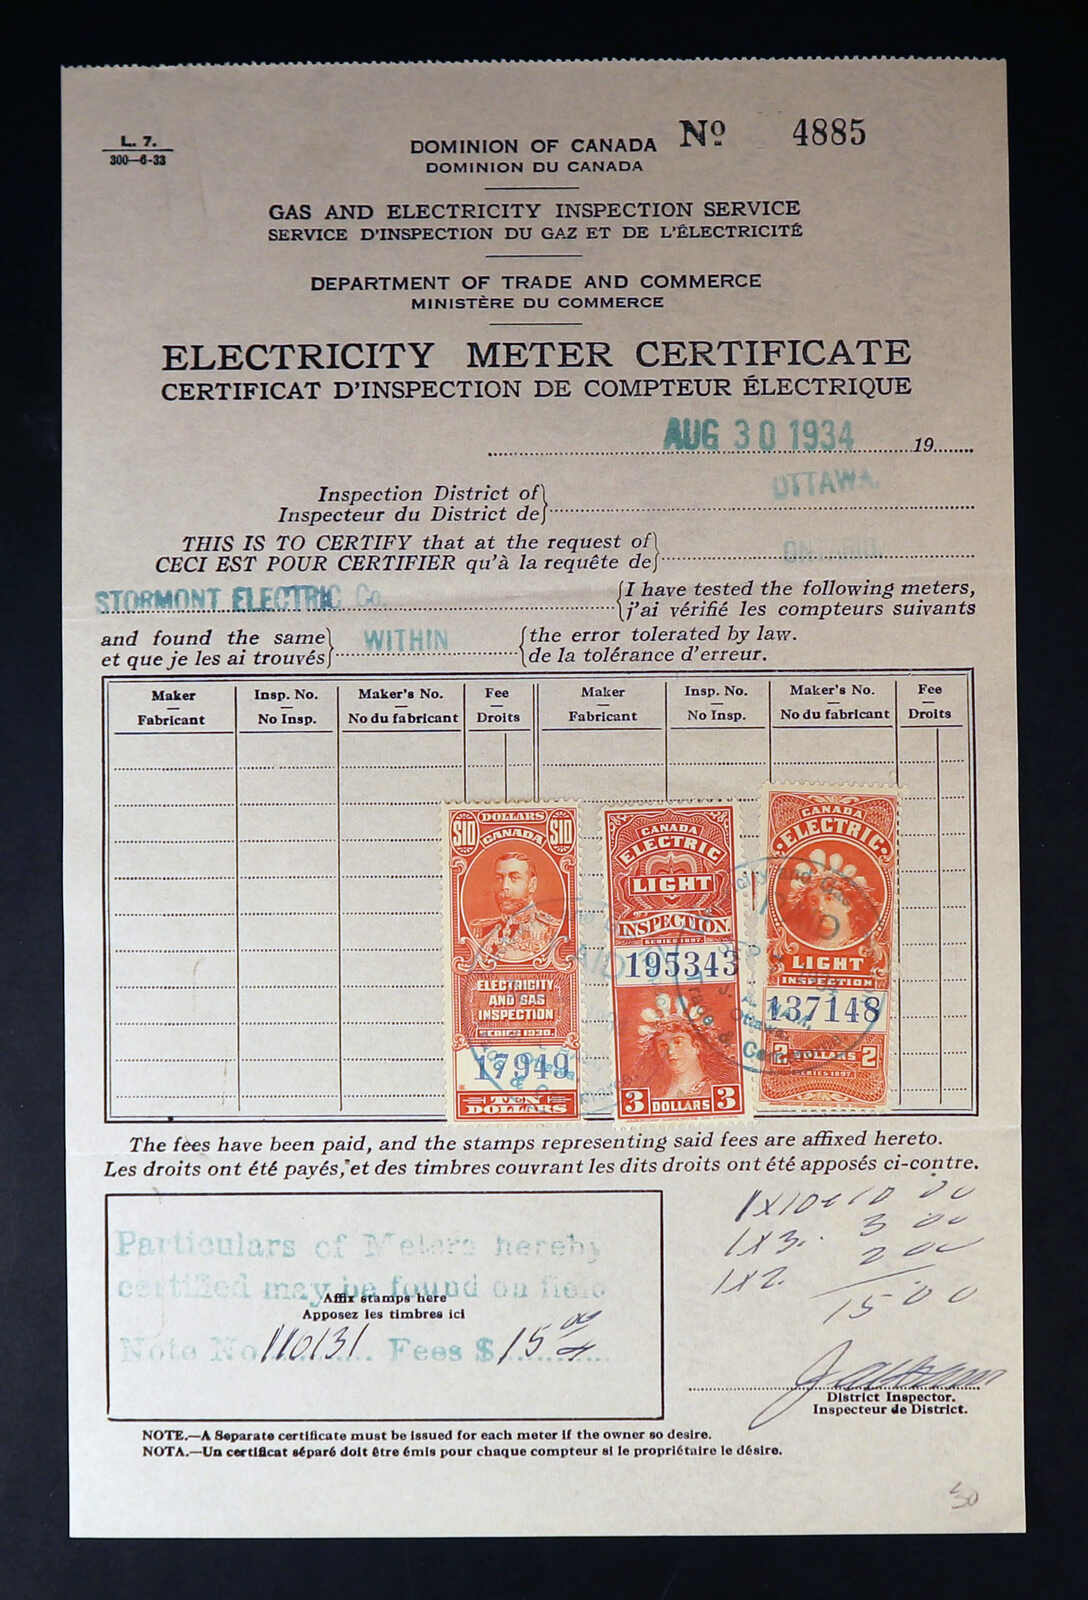 L. 7.
300—6-33
Nº 4885
DOMINION OF CANADA
DOMINION DU CANADA
GAS AND ELECTRICITY INSPECTION SERVICE
SERVICE D'INSPECTION DU GAZ ET DE L'ÉLECTRICITÉ
DEPARTMENT OF TRADE AND COMMERCE
MINISTÈRE DU COMMERCE
ELECTRICITY METER CERTIFICATE
CERTIFICAT D'INSPECTION DE COMPTEUR ÉLECTRIQUE
AUG 30 1934 19
Inspection District of
Inspecteur du District de
OTTAWA.
THIS IS TO CERTIFY that at the request of
CECI EST POUR CERTIFIER qu'à la requête de
ONTARIO.
STORMONT ELECTRIC Co.
I have tested the following meters,
j'ai vérifié les compteurs suivants
and found the same
et que je les ai trouvés
WITHIN
the error tolerated by law.
de la tolérance d'erreur.
Maker Insp. No. Maker's No. Fee Maker Insp. No. Maker's No. Fee
Fabricant No Insp. No du fabricant Droits Fabricant No Insp. No du fabricant Droits
$10 DOLLARS $10
CANADA
ELECTRICITY
AND GAS
INSPECTION
SERIES 1930.
17949
TEN
DOLLARS
CANADA
ELECTRIC
LIGHT
INSPECTION
SERIES 1897.
195343
3 DOLLARS 3
CANADA
ELECTRIC
LIGHT
INSPECTION
137148
2 DOLLARS 2
SERIES 1897.
The fees have been paid, and the stamps representing said fees are affixed hereto.
Les droits ont été payés, et des timbres couvrant les dits droits ont été apposés ci-contre.
1x10 10 00
1x3. 3 00
1x2. 2 00
15 00
Particulars of Meters hereby
certified may be found on field
Affix stamps here
Apposez les timbres ici
Note No 110131 Fees $ 15 00
District Inspector.
Inspecteur de District.
NOTE.—A Separate certificate must be issued for each meter if the owner so desire.
NOTA.—Un certificat séparé doit être émis pour chaque compteur si le propriétaire le désire.
50